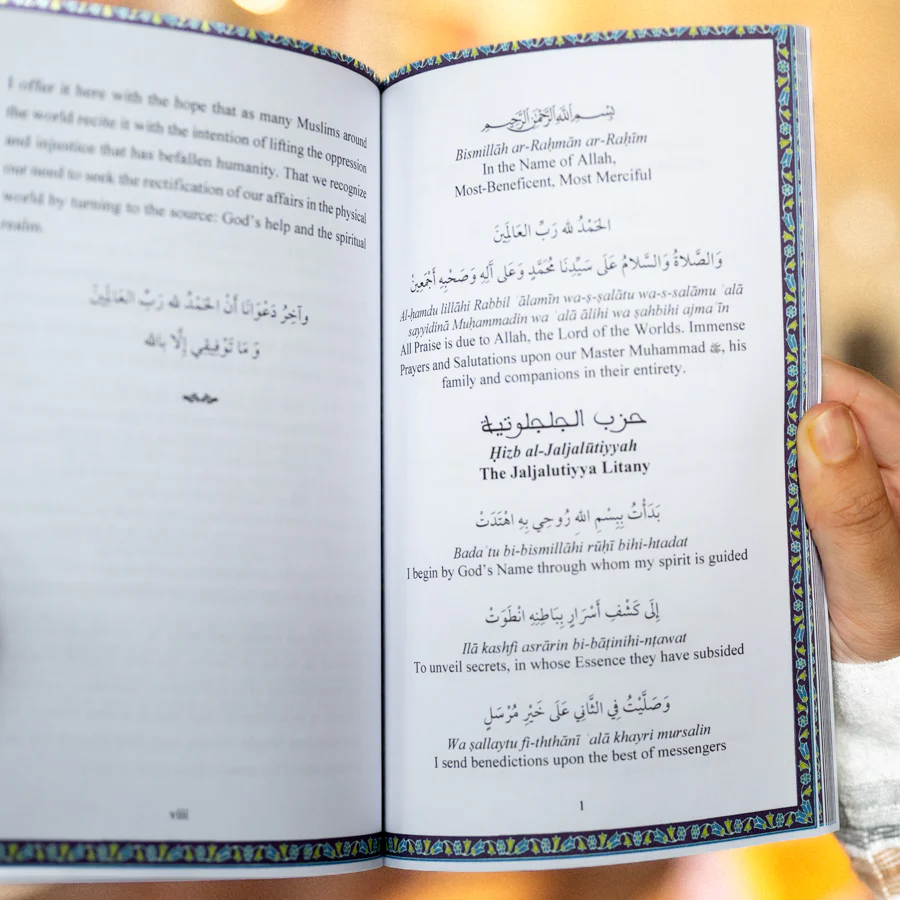 I offer it here with the hope that as many Muslims around
the world recite it with the intention of lifting the oppression
and injustice that has befallen humanity. That we recognize
our need to seek the rectification of our affairs in the physical
world by turning to the source: God's help and the spiritual
realm.
وآخِرُ دَعْوَانَا أَنْ الحَمْدُ لله رَبِّ العَالَمِيْنَ
وَ مَا تَوْفِيقِي إِلَّا بالله
viii
بِسْمِ ٱللَّٰهِ ٱلرَّحْمَٰنِ ٱلرَّحِيمِ
Bismillāh ar-Raḥmān ar-Raḥīm
In the Name of Allah,
Most-Beneficent, Most Merciful
الحَمْدُ لله رَبِّ العَالَمِيْنَ
وَالصَّلَاةُ وَالسَّلامُ عَلَى سَيِّدِنَا مُحَمَّدٍ وَعَلى آلِهِ وَصَحْبِهِ أَجْمَعِيْنْ
Al-ḥamdu lillāhi Rabbil ʿālamīn wa-ṣ-ṣalātu wa-s-salāmu ʿalā
sayyidinā Muḥammadin wa ʿalā ālihi wa ṣahbihi ajmaʿīn
All Praise is due to Allah, the Lord of the Worlds. Immense
Prayers and Salutations upon our Master Muhammad ﷺ, his
family and companions in their entirety.
حزب الجلجلوتية
Ḥizb al-Jaljalūtiyyah
The Jaljalutiyya Litany
بَدَأْتُ بِبِسْمِ اللهِ رُوحِي بِهِ اهْتَدَتْ
Badaʾtu bi-bismillāhi rūḥī bihi-htadat
I begin by God's Name through whom my spirit is guided
إِلَى كَشْفِ أَسْرَارٍ بِبَاطِنِهِ انْطَوَتْ
Ilā kashfi asrārin bi-bāṭinihi-nṭawat
To unveil secrets, in whose Essence they have subsided
وَصَلَّيْتُ فِي الثَّانِي عَلَى خَيْرِ مُرْسَلٍ
Wa ṣallaytu fi-ththānī ʿalā khayri mursalin
I send benedictions upon the best of messengers
1